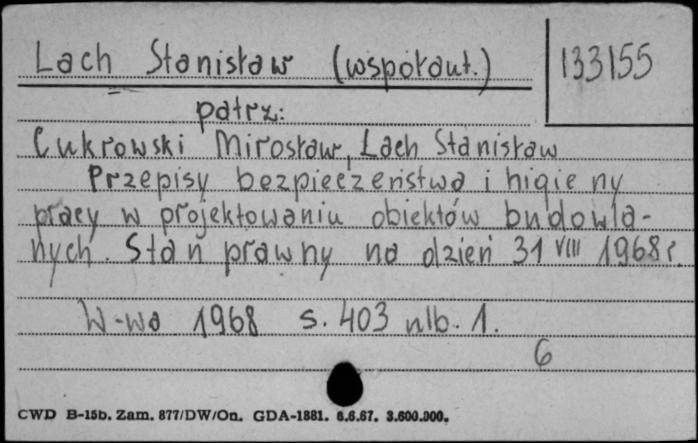 Lach Stanisław (współaut.) 133155
patrz:
Cukrowski Mirosław, Lach Stanisław
Przepisy bezpieczeństwa i higieny
pracy w projektowaniu obiektów budowla-
nych. Stan prawny na dzień 31 VIII 1968 r.
W-wa 1968 s. 403 nlb. 1.
6
CWD B-15b. Zam. 877/DW/On. GDA-1881. 6.6.67. 3.600.000.